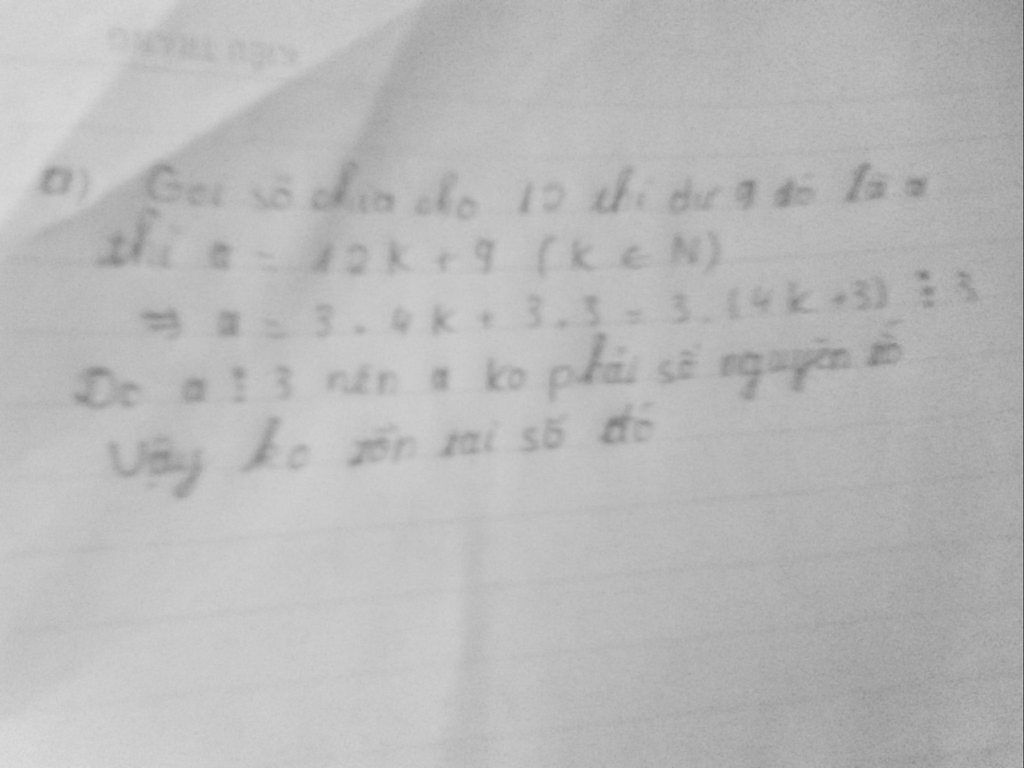 KIỀU TRANG
a) Gọi số chia cho 12 thì dư 9 đó là a
thì a = 12k + 9 (k ∈ N)
⇒ a = 3.4k + 3.3 = 3.(4k+3) ⋮ 3
Do a ⋮ 3 nên a ko phải số nguyên tố
Vậy ko tồn tại số đó